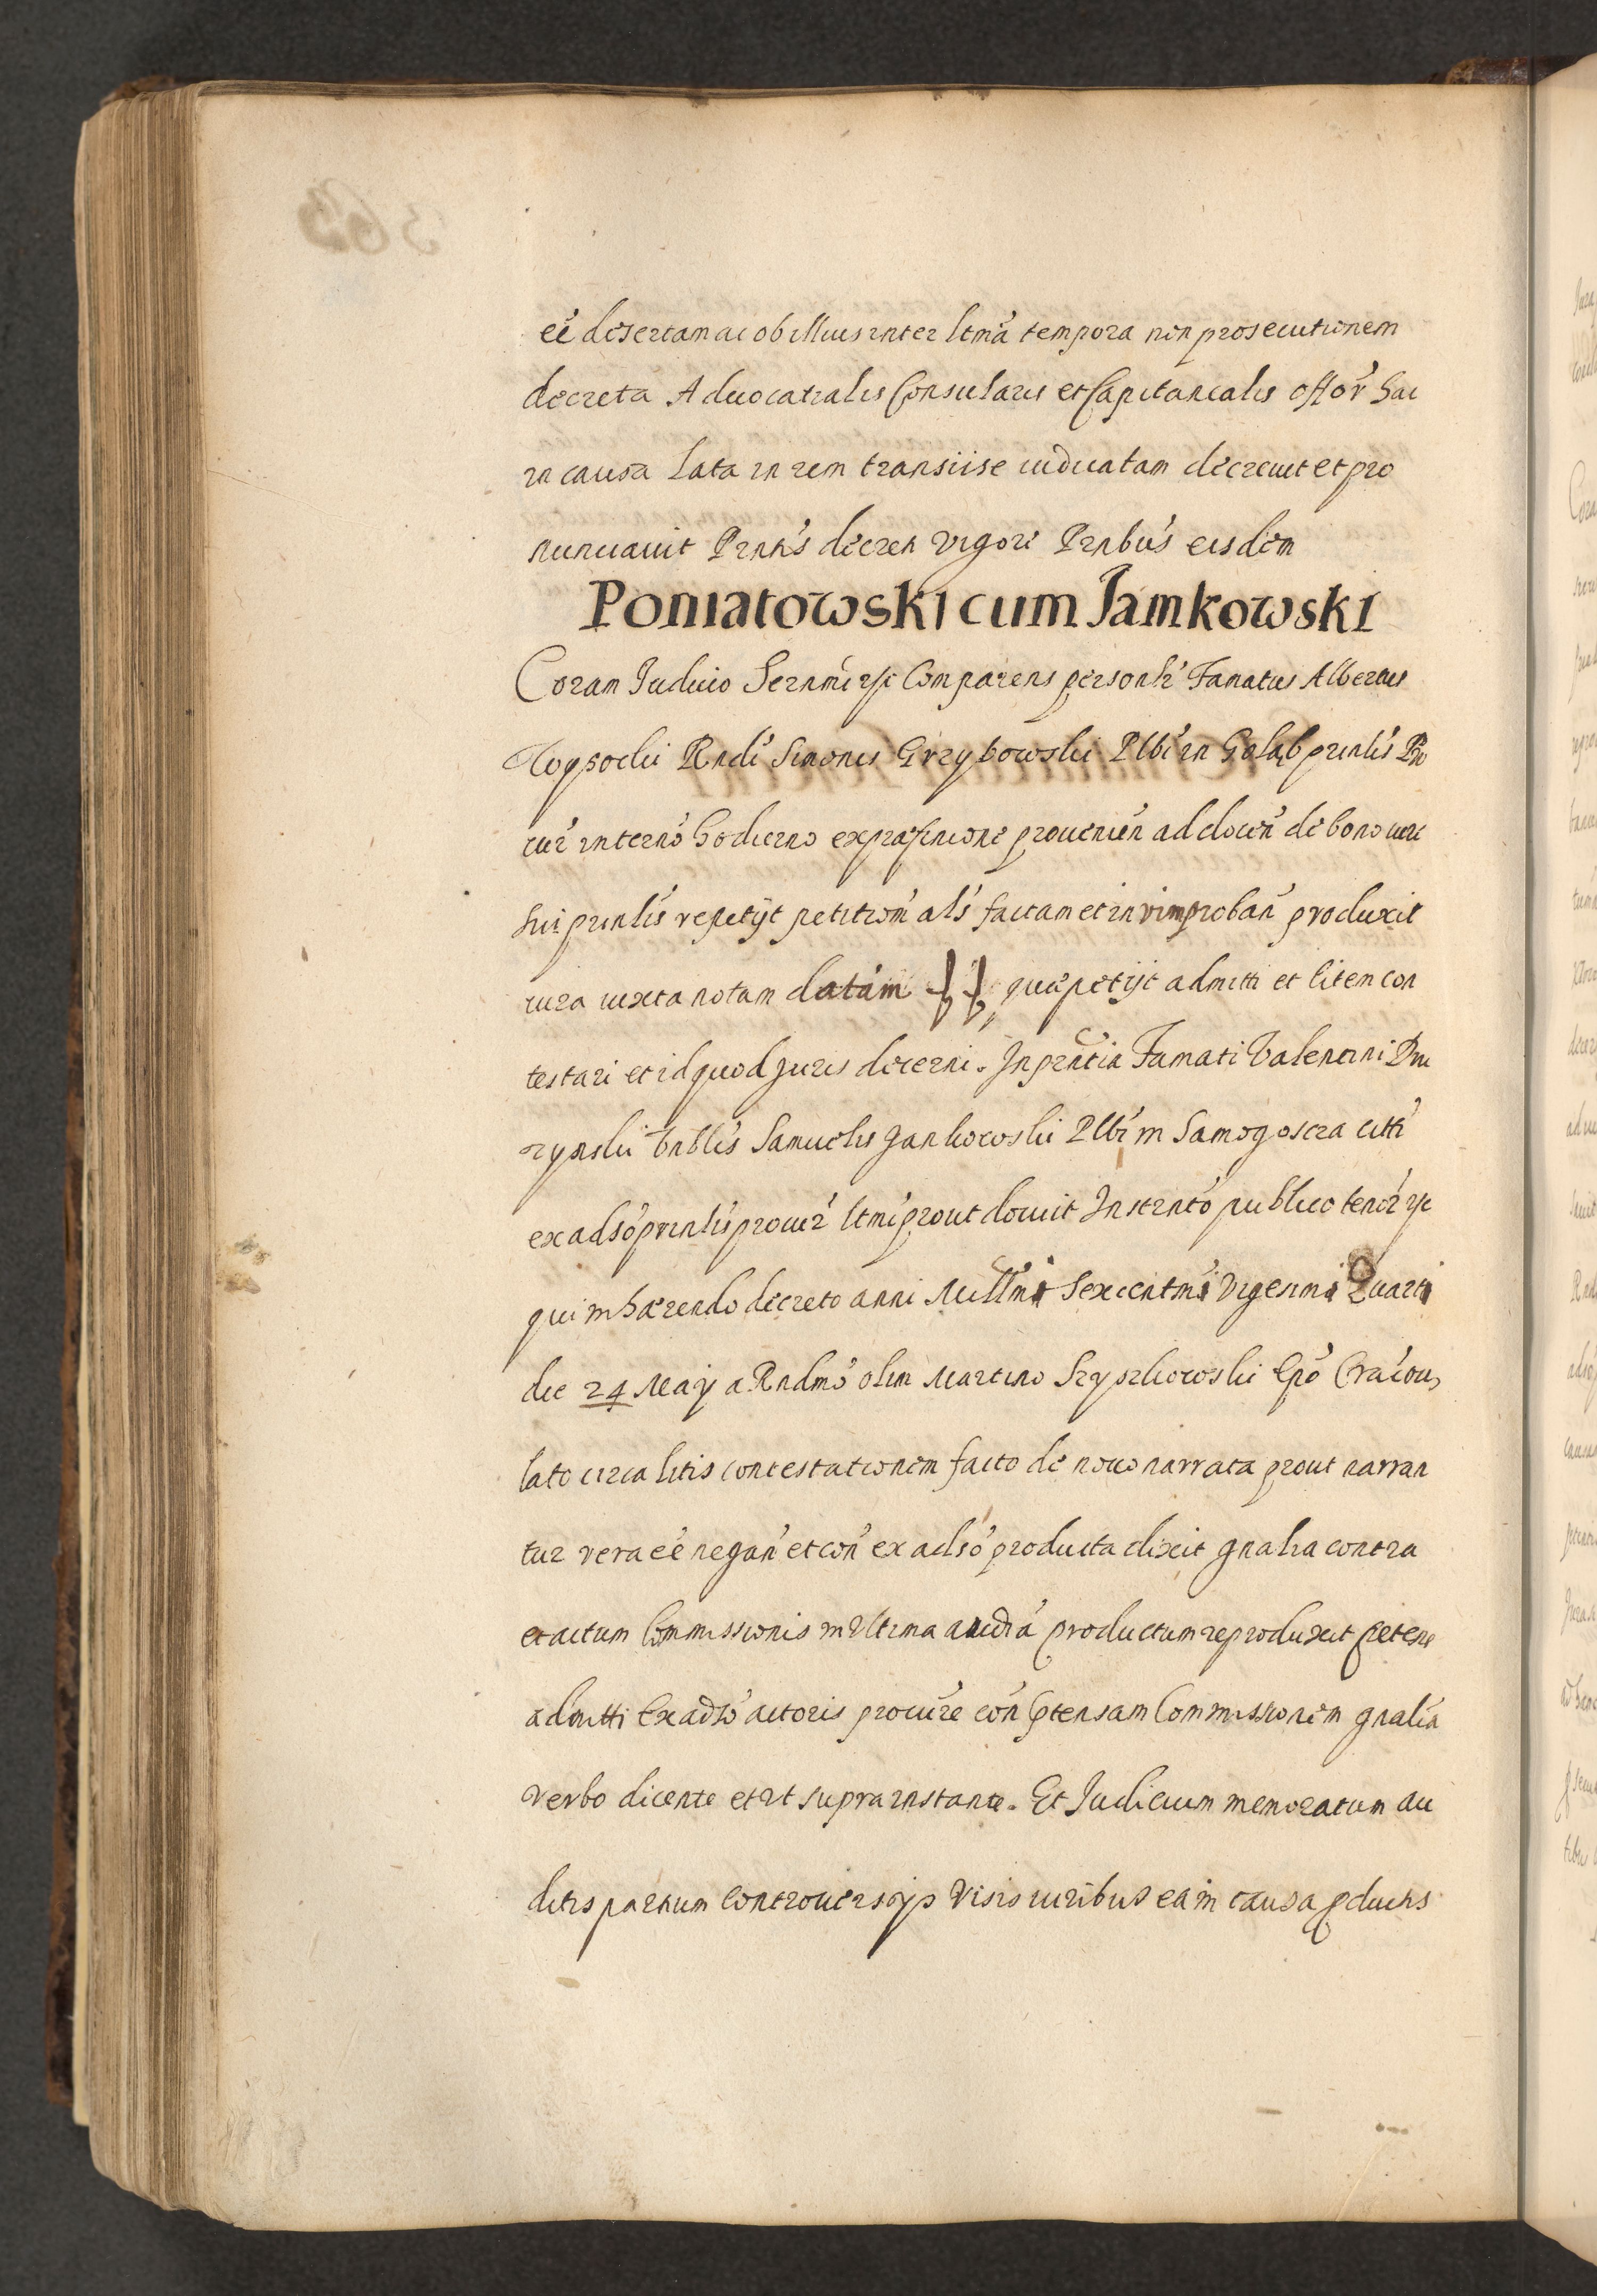 eé desertam ac ob illius inter ltmá tempora non prosecutionem
decreta Aduocatialis Consularis et Capitanealis offor̃ hac
in causa lata in rem transiise iudicatam decreuit et pro
nunciauit Pzntis̃ decreti vigore Partbús eisdem
Poniatowski cum Jamkowski
Coram Judicio Sernmi etc Comparens personlr̃ Famatus Albertus
Rndi Simonis Grzybowski Plbi in Golab prinlis̃ Pro
cur̃ interno hodierno ex prafinicione prouenien̄ ad docen̄ de bono iure
sui prinlis̃ repetijt petitiom̃ als̃ factam et in vim proban̄ produxit
iura iuxta notam datam quae petijt admitti et litem con
testari et id quod Juris decerni. In prntia Famati Valentini
Samuelis Jankowski Plbi in Samogoscza citti
ex adso prinlis̃ procur̃ ltmi prout docuit Instrnto publico tenor̃ etc
qui inhærendo decreto anni Millmi Sexcentmi Vigesimi Quarti
die 24 Maij a Rndmo olim Martino Szyszkowski Epo Cracou,
lato circa litis contestationem facto de nouo narrata prout narran
tur vera eé negan̄ et con̄ ex adso producta dixit gnalia contra
et actum Commissionis in Vltima audia productum reproduxit petens
admitti Ex adso actoris procure con̄ ptensam Commissionem gnalia
verbo dicente et vt supra instante. Et Judicium memoratum au
ditis partium controuersijs visis iuribus ea in causa pductis